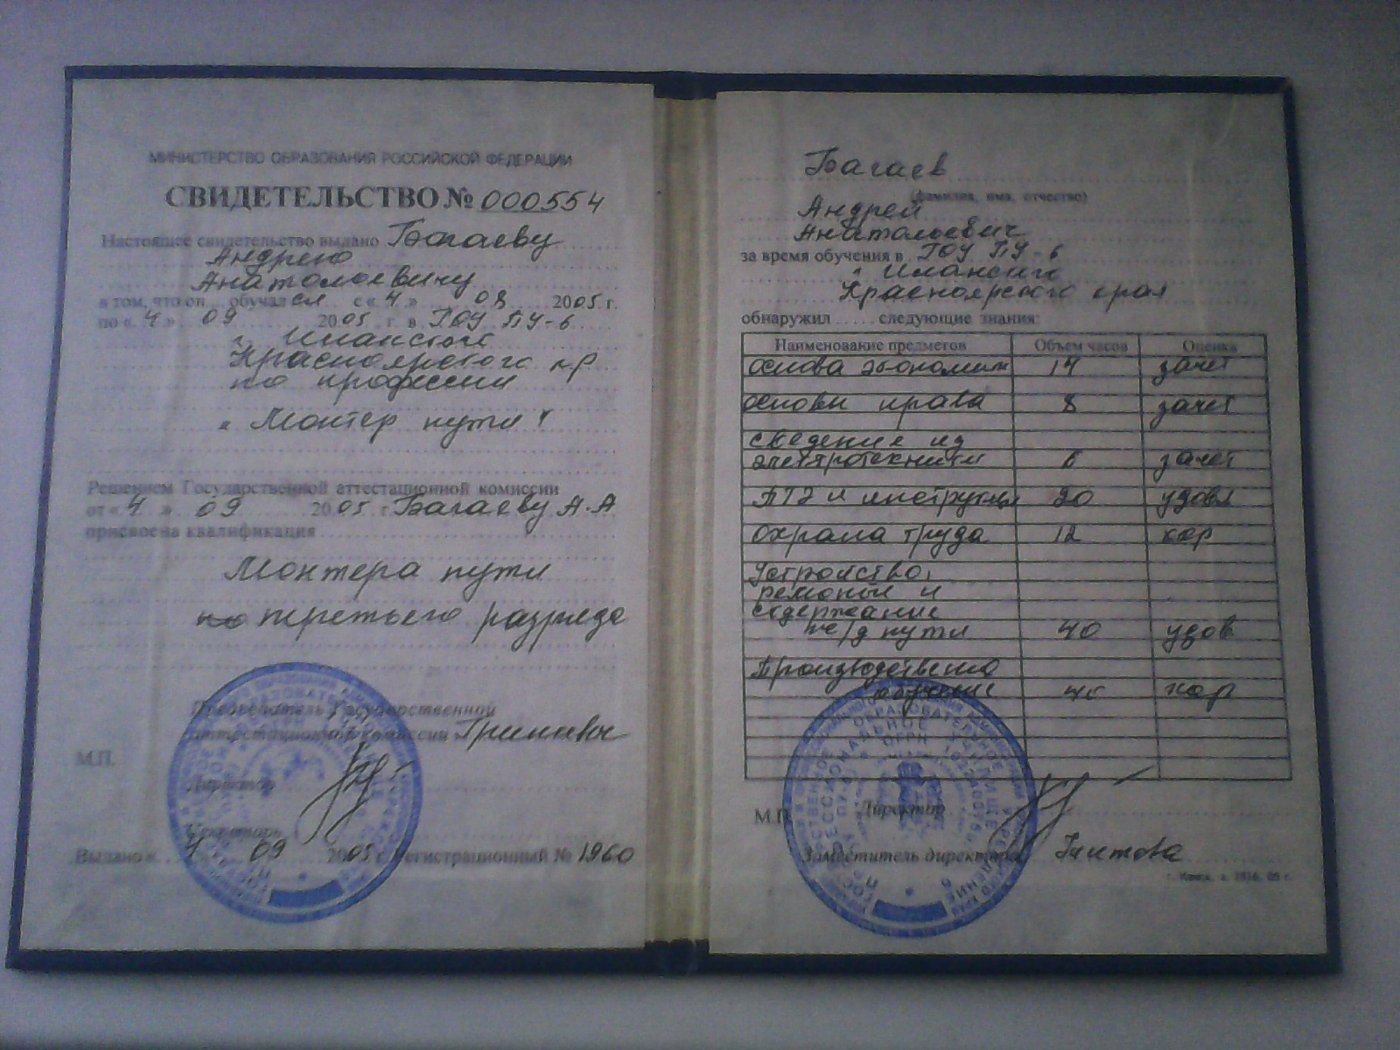 МИНИСТЕРСТВО ОБРАЗОВАНИЯ РОССИЙСКОЙ ФЕДЕРАЦИИ
СВИДЕТЕЛЬСТВО № 000554
Настоящее свидетельство выдано Багаеву
Андрею
Анатолоевичу
в том, что он обучался с « 4 » 08 2005 г.
по « 4 » 09 2005 г. в ГОУ ПУ-6
г. Иланского
Красноярского кр
по профессии
„ Монтер пути "
Решением Государственной аттестационной комиссии
от « 4 » 09 2005 г. Багаеву А.А
присвоена квалификация
Монтера пути
третьего разряда
Председатель Государственной
аттестационной комиссии
М.П.
Директор
Секретарь
Выдано « 4 09 2005 г. Регистрационный № 1960
Багаев
(фамилия, имя, отчество)
Андрей
Анатолоевич
за время обучения в ГОУ ПУ-6
г. Иланского
Красноярского края
обнаружил следующие знания:
Наименование предметов Объем часов Оценка
основа экономик 14 зачет
основы права 8 зачет
сведение из
электротехники 6 зачет
ПТЭ и инструкции 20 удовл
охрана труда 12 хор
Устройство,
ремонт и
содержание
же/д пути 40 удов
Производствено
обучение хор
М.П.
Директор
Заместитель директора